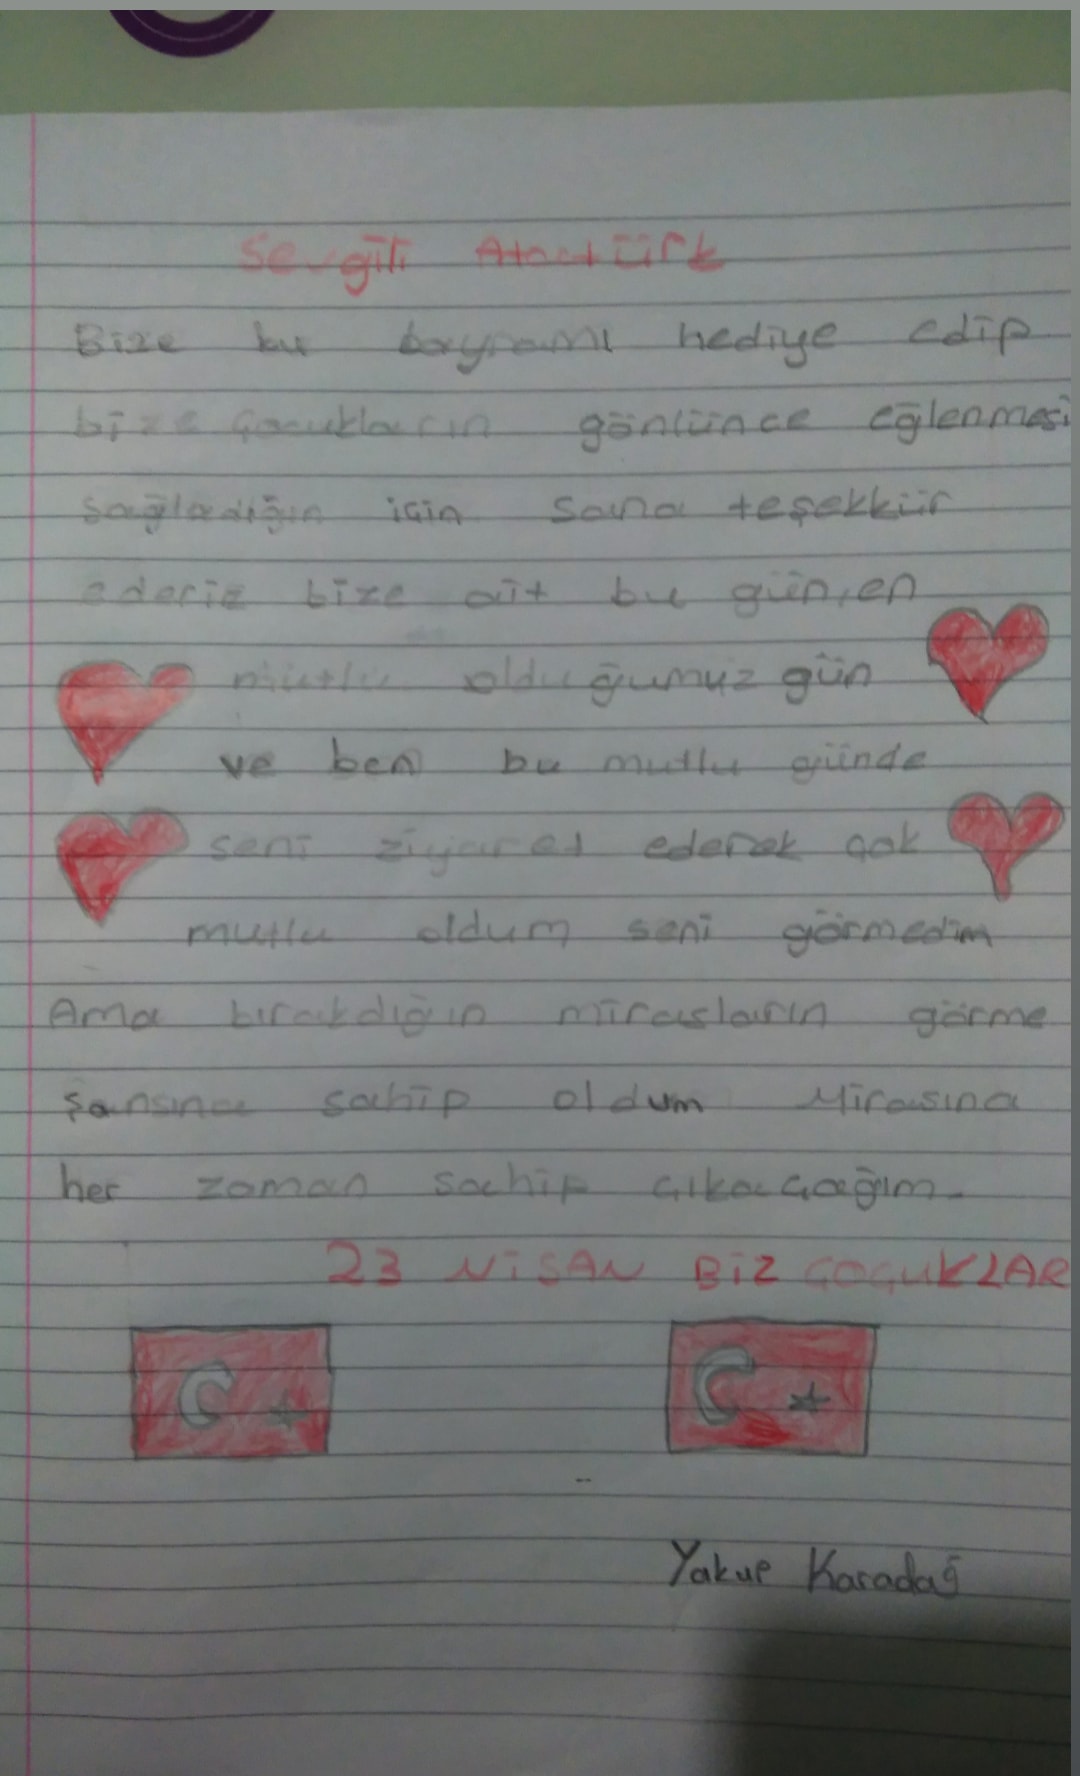 Sevgili Atatürk
Bize bu bayramı hediye edip
bize çocukların gönlünce eğlenmesi
sağladığın için sana teşekkür
ederiz bize ait bu gün, en
mutlu olduğumuz gün
ve ben bu mutlu günde
seni ziyaret ederek çok
mutlu oldum seni görmedim
Ama bırakdığın mirasların görme
şansına sahip oldum Mirasına
her zaman sahip çıkacağım.
23 NİSAN BİZ ÇOÇUKLAR
Yakup Karadağ